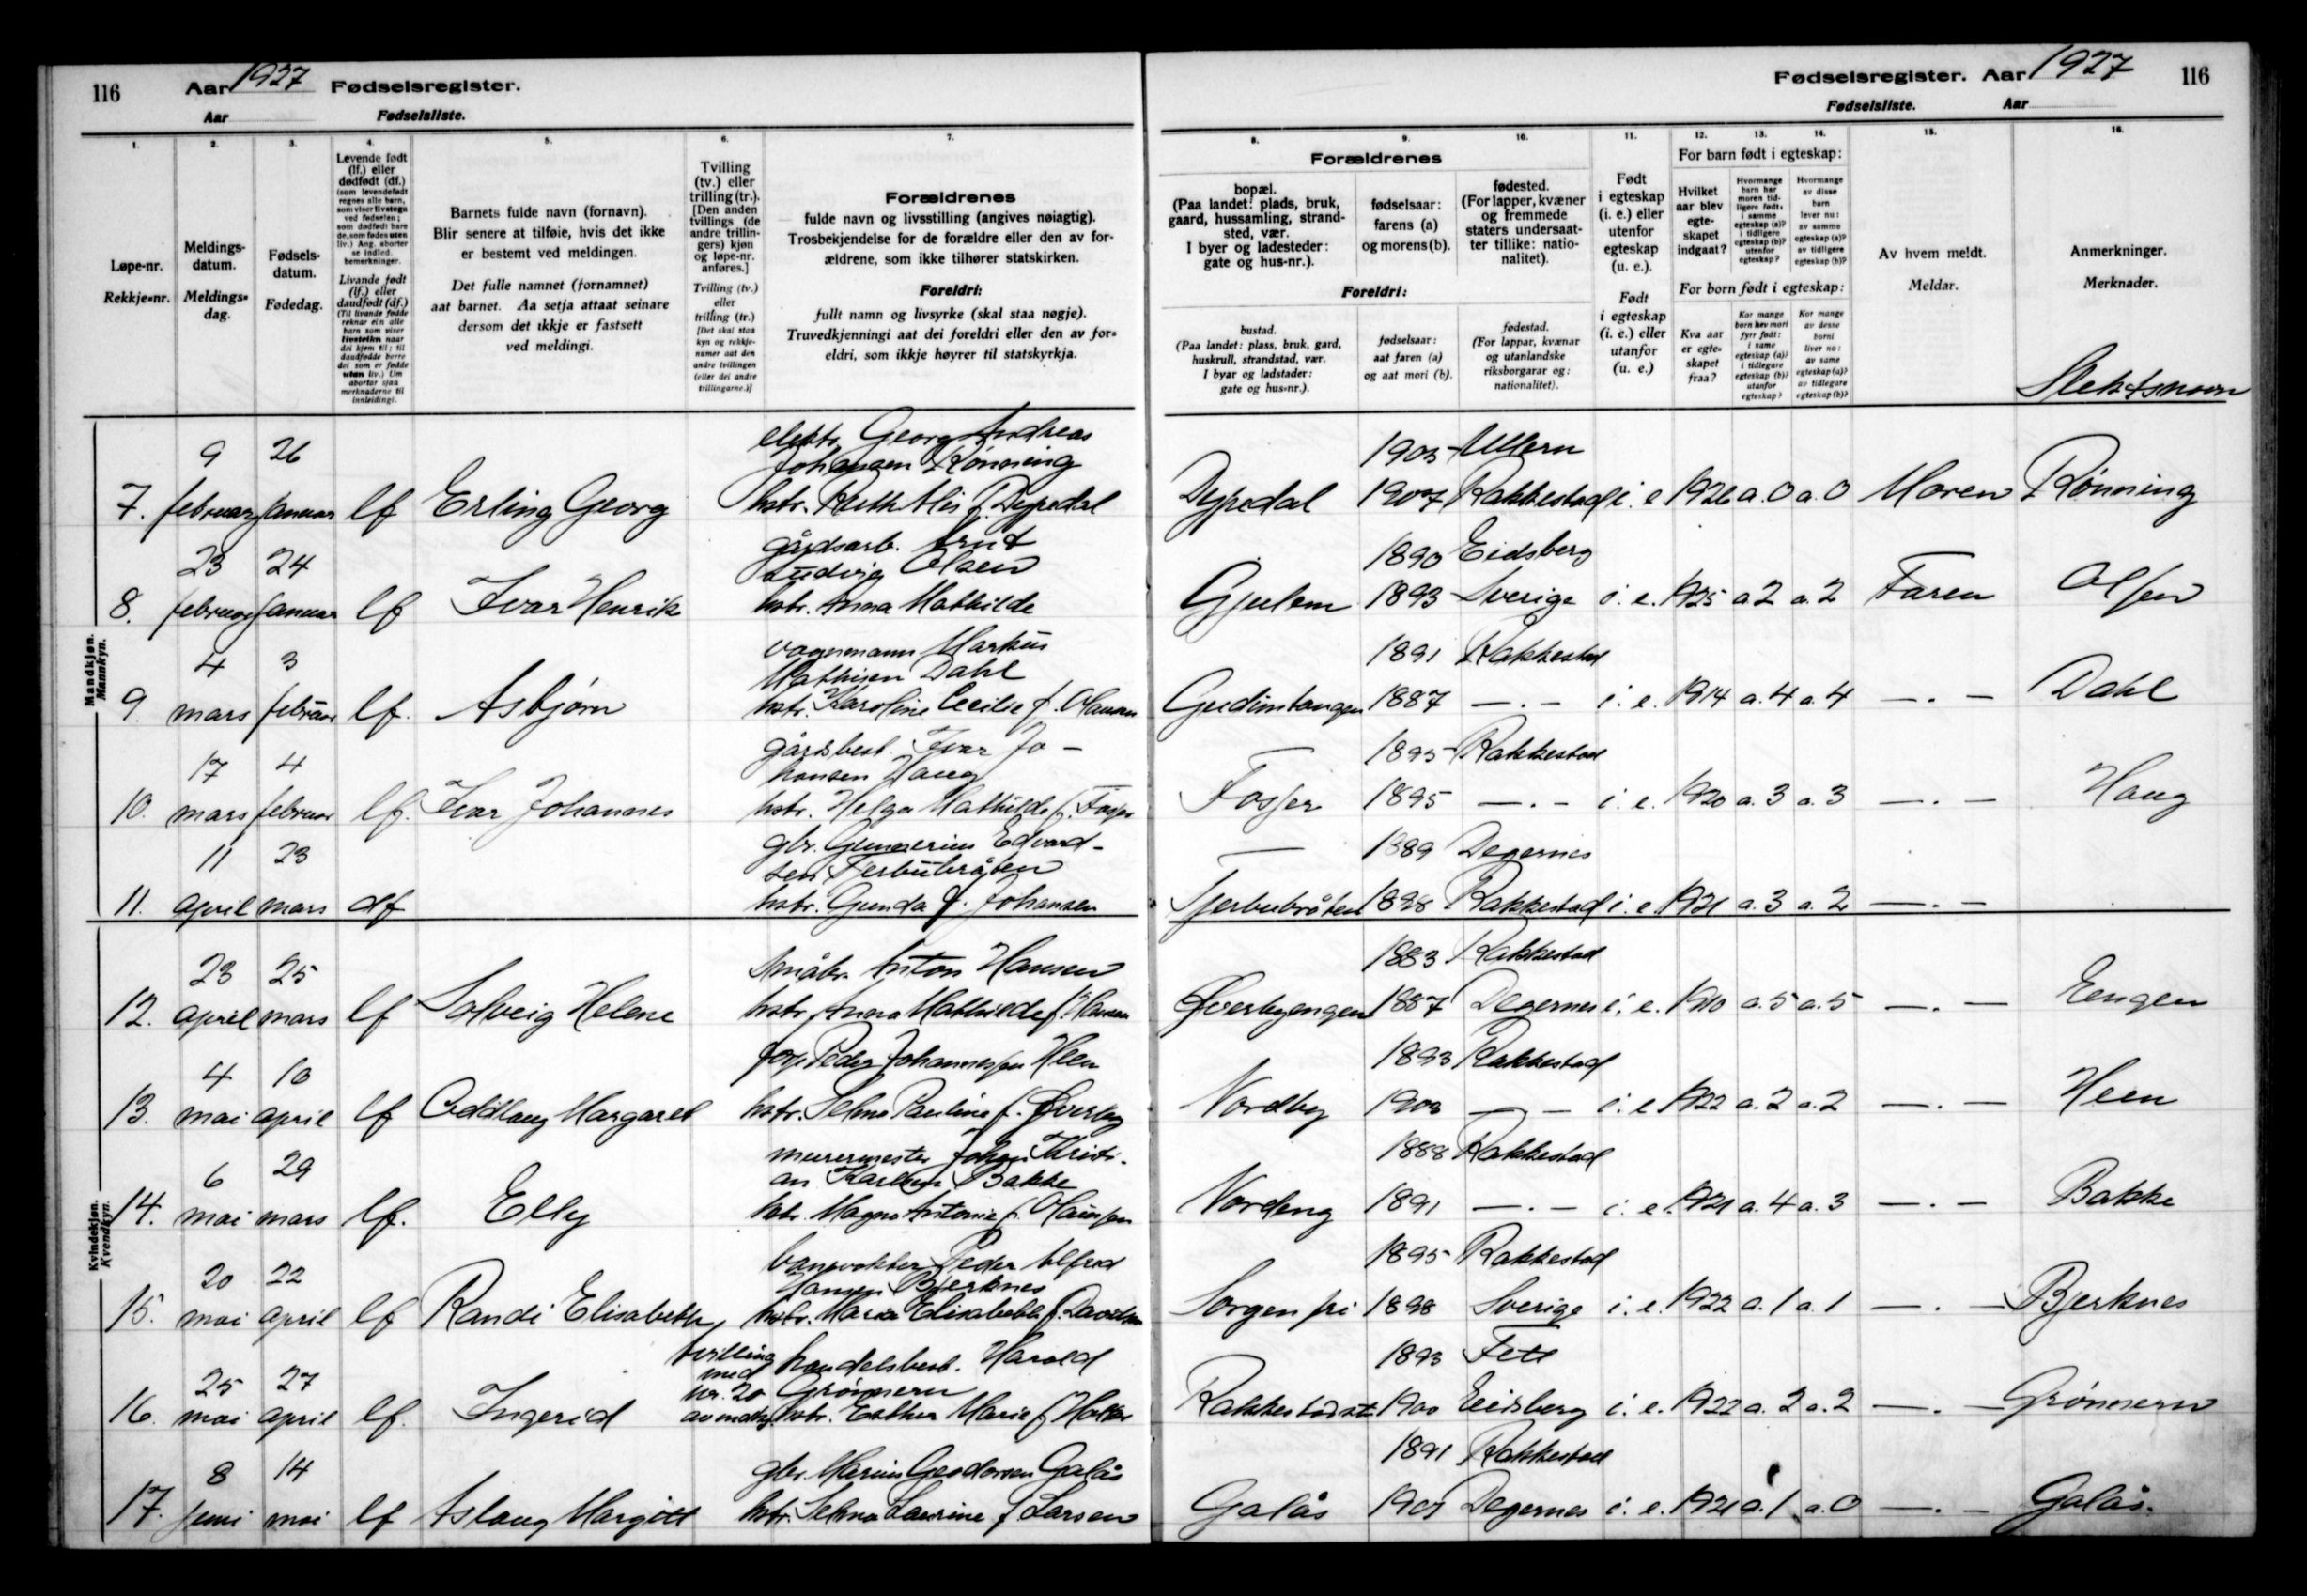 116 Aar 1927 Fødselsregister.
Aar Fødselsliste.
1. 2. 3. 4. 5. 6. 7.
Løpe-nr.
Rekkje-nr.
Meldings-
datum.
Meldings-
dag.
Fødsels-
datum.
Fødedag.
Levende født
(lf.) eller
dødfødt (df.)
(som levendefødt
regnes alle barn,
som viser livstegn
ved fødselen;
som dødfødt bare
de, som fødes uten
liv.) Ang. aborter
se indled.
bemerkninger.
Livande født
(lf.) eller
daudfødt (df.)
(Til livande fødde
reknar ein alle
barn som viser
livsteikn naar
dei kjem til; til
daudfødde berre
dei som er fødde
utan liv.) Um
abortar sjaa
merknaderne til
innleidingi.
Barnets fulde navn (fornavn).
Blir senere at tilføie, hvis det ikke
er bestemt ved meldingen.
Det fulle namnet (fornamnet)
aat barnet. Aa setja attaat seinare
dersom det ikkje er fastsett
ved meldingi.
Tvilling
(tv.) eller
trilling (tr.).
[Den anden
tvillings (de
andre trillin-
gers) kjøn
og løpe-nr.
anføres.]
Tvilling (tv.)
eller
trilling (tr.)
[Det skal staa
kyn og rekkje-
numer aat den
andre tvillingen
(eller dei andre
trillingarne.)]
Forældrenes
fulde navn og livsstilling (angives nøiagtig).
Trosbekjendelse for de forældre eller den av for-
ældrene, som ikke tilhører statskirken.
Foreldri:
fullt namn og livsyrke (skal staa nøgje).
Truvedkjenningi aat dei foreldri eller den av for-
eldri, som ikkje høyrer til statskyrkja.
Mandkjøn.
Mannkyn.
9 26 elektr. Georg Andreas
Johansen Rønning
7. februar januar lf Erling Georg hstr. Ruth Alis f. Dypedal
23 24 gårdsarb. Knut
Ludvig Olsen
8. februar januar lf Ivar Henrik hstr. Anna Mathilde
4 3 vognmann Markus
Mathisen Dahl
9. mars februar lf. Asbjørn hstr. Karoline Cecilie f. Olausen
17 4 gårdsbest. Ivar Jo-
hansen Haug
10. mars februar lf. Ivar Johannes hstr. Helga Mathilde f. Fosser
11 23 gbr. Gunnerius Edvard-
sen Tjerbubråten
11. april mars df hstr. Gunda f. Johansen
Kvindekjøn.
Kvendkyn.
23 25 Småbr. Anton Hansen
12. april mars lf Solveig Helene hstr. Anna Mathilde f. Hansen
4 10 forp. Peder Johannessen Heen
13. mai april lf Oddlaug Margaret hstr. Selma Pauline f. Øverby
6 29 murermester Johan Kristi-
an Karlsen Bakke
14. mai mars lf. Elly hstr. Magna Antonie f. Olaussen
20 22 banevokter Peder Alfred
Hansen Bjerknes
15. mai april lf Randi Elisabeth hstr. Maria Elisabeth f. Davidsen
25 27 tvilling med nr. 20 av mandkj. handelsbest. Harald
Grønnern
16. mai april lf. Ingerid hstr. Esther Marie f. Holter
8 14 gbr. Marius Geodorsen Galås
17. juni mai lf Aslaug Margitt hstr. Selma Laurine f Larsen
Fødselsregister. Aar 1927 116
Fødselsliste. Aar
8. 9. 10. 11. 12. 13. 14. 15. 16.
Forældrenes
bopæl.
(Paa landet: plads, bruk,
gaard, hussamling, strand-
sted, vær.
I byer og ladesteder:
gate og hus-nr.).
fødselsaar:
farens (a)
og morens (b).
fødested.
(For lapper, kvæner
og fremmede
staters undersaat-
ter tillike: natio-
nalitet).
Foreldri:
bustad.
(Paa landet: plass, bruk, gard,
huskrull, strandstad, vær.
I byar og ladstader:
gate og hus-nr.).
fødselsaar:
aat faren (a)
og aat mori (b).
fødestad.
(For lappar, kvænar
og utanlandske
riksborgarar og:
nationalitet).
Født
i egteskap
(i. e.) eller
utenfor
egteskap
(u. e.).
Født
i egteskap
(i. e.) eller
utanfor
(u. e.)
For barn født i egteskap:
Hvilket
aar blev
egte-
skapet
indgaat?
Hvormange
barn har
moren tid-
ligere født:
i samme
egteskap (a)?
i tidligere
egteskap (b)?
utenfor
egteskap?
Hvormange
av disse
barn
lever nu:
av samme
egteskap (a)?
av tidligere
egteskap (b)?
For born født i egteskap:
Kva aar
er egte-
skapet
fraa?
Kor mange
born hev mori
fyrr født:
i same
egteskap (a)?
i tidlegare
egteskap (b)?
utanfor
egteskap?
Kor mange
av desse
borni
liver no:
av same
egteskap (a)?
av tidlegare
egteskap (b)?
Av hvem meldt.
Meldar.
Anmerkninger.
Merknader.
Slektsnavn
1903 Ullern
Dypedal 1907 Rakkestad i. e 1926 a. 0 a. 0 Moren Rønning
1890 Eidsberg
Gjulem 1893 Sverige i. e. 1925 a 2 a. 2 Faren Olsen
1891 Rakkestad
Gudimtangen 1887 —.— i. e. 1914 a. 4 a. 4 —.— Dahl
1895 Rakkestad
Fosser 1895 —.— i. e. 1920 a. 3 a. 3 —.— Haug
1889 Degernes
Tjerbubråten 1898 Rakkestad i. e 1921 a. 3 a. 2 —.—
1883 Rakkestad
Øverbyengen 1887 Degernes i. e. 1910 a. 5 a. 5 —.— Eengen
1893 Rakkestad
Nordby 1903 —.— i. e 1922 a. 2 a. 2 —.— Heen
1888 Rakkestad
Nordeng 1891 —.— i. e. 1921 a. 4 a. 3 —.— Bakke
1895 Rakkestad
Sorgenfri 1898 Sverige i. e. 1922 a. 1 a. 1 —.— Bjerknes
1893 Fett
Rakkestad st. 1900 Eidsberg i. e. 1922 a. 2 a. 2 —.— Grønnern
1891 Rakkestad
Galås Degernes i. e. 1921 a. 1 a. 0 —.— Galås.